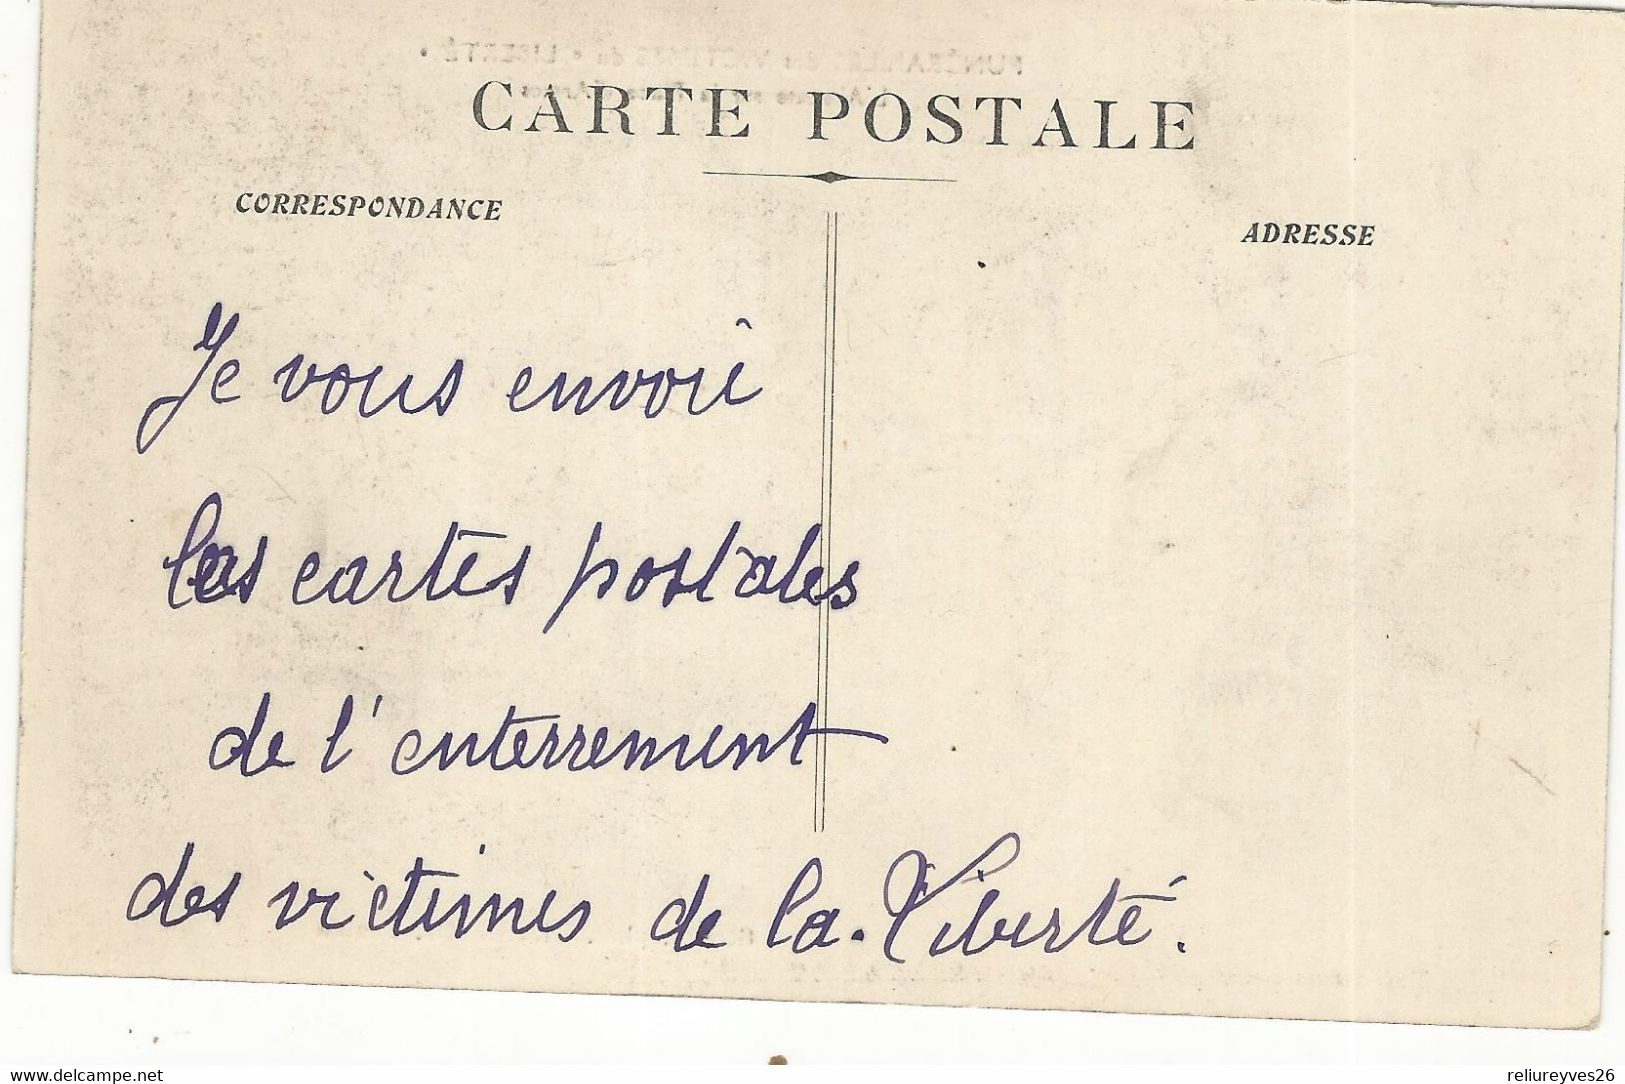 CARTE POSTALE
CORRESPONDANCE
ADRESSE
Je vous envoiê
les cartes postales
de l'enterrement
des victimes de la Liberté.
delcampe.net
reliureyves26